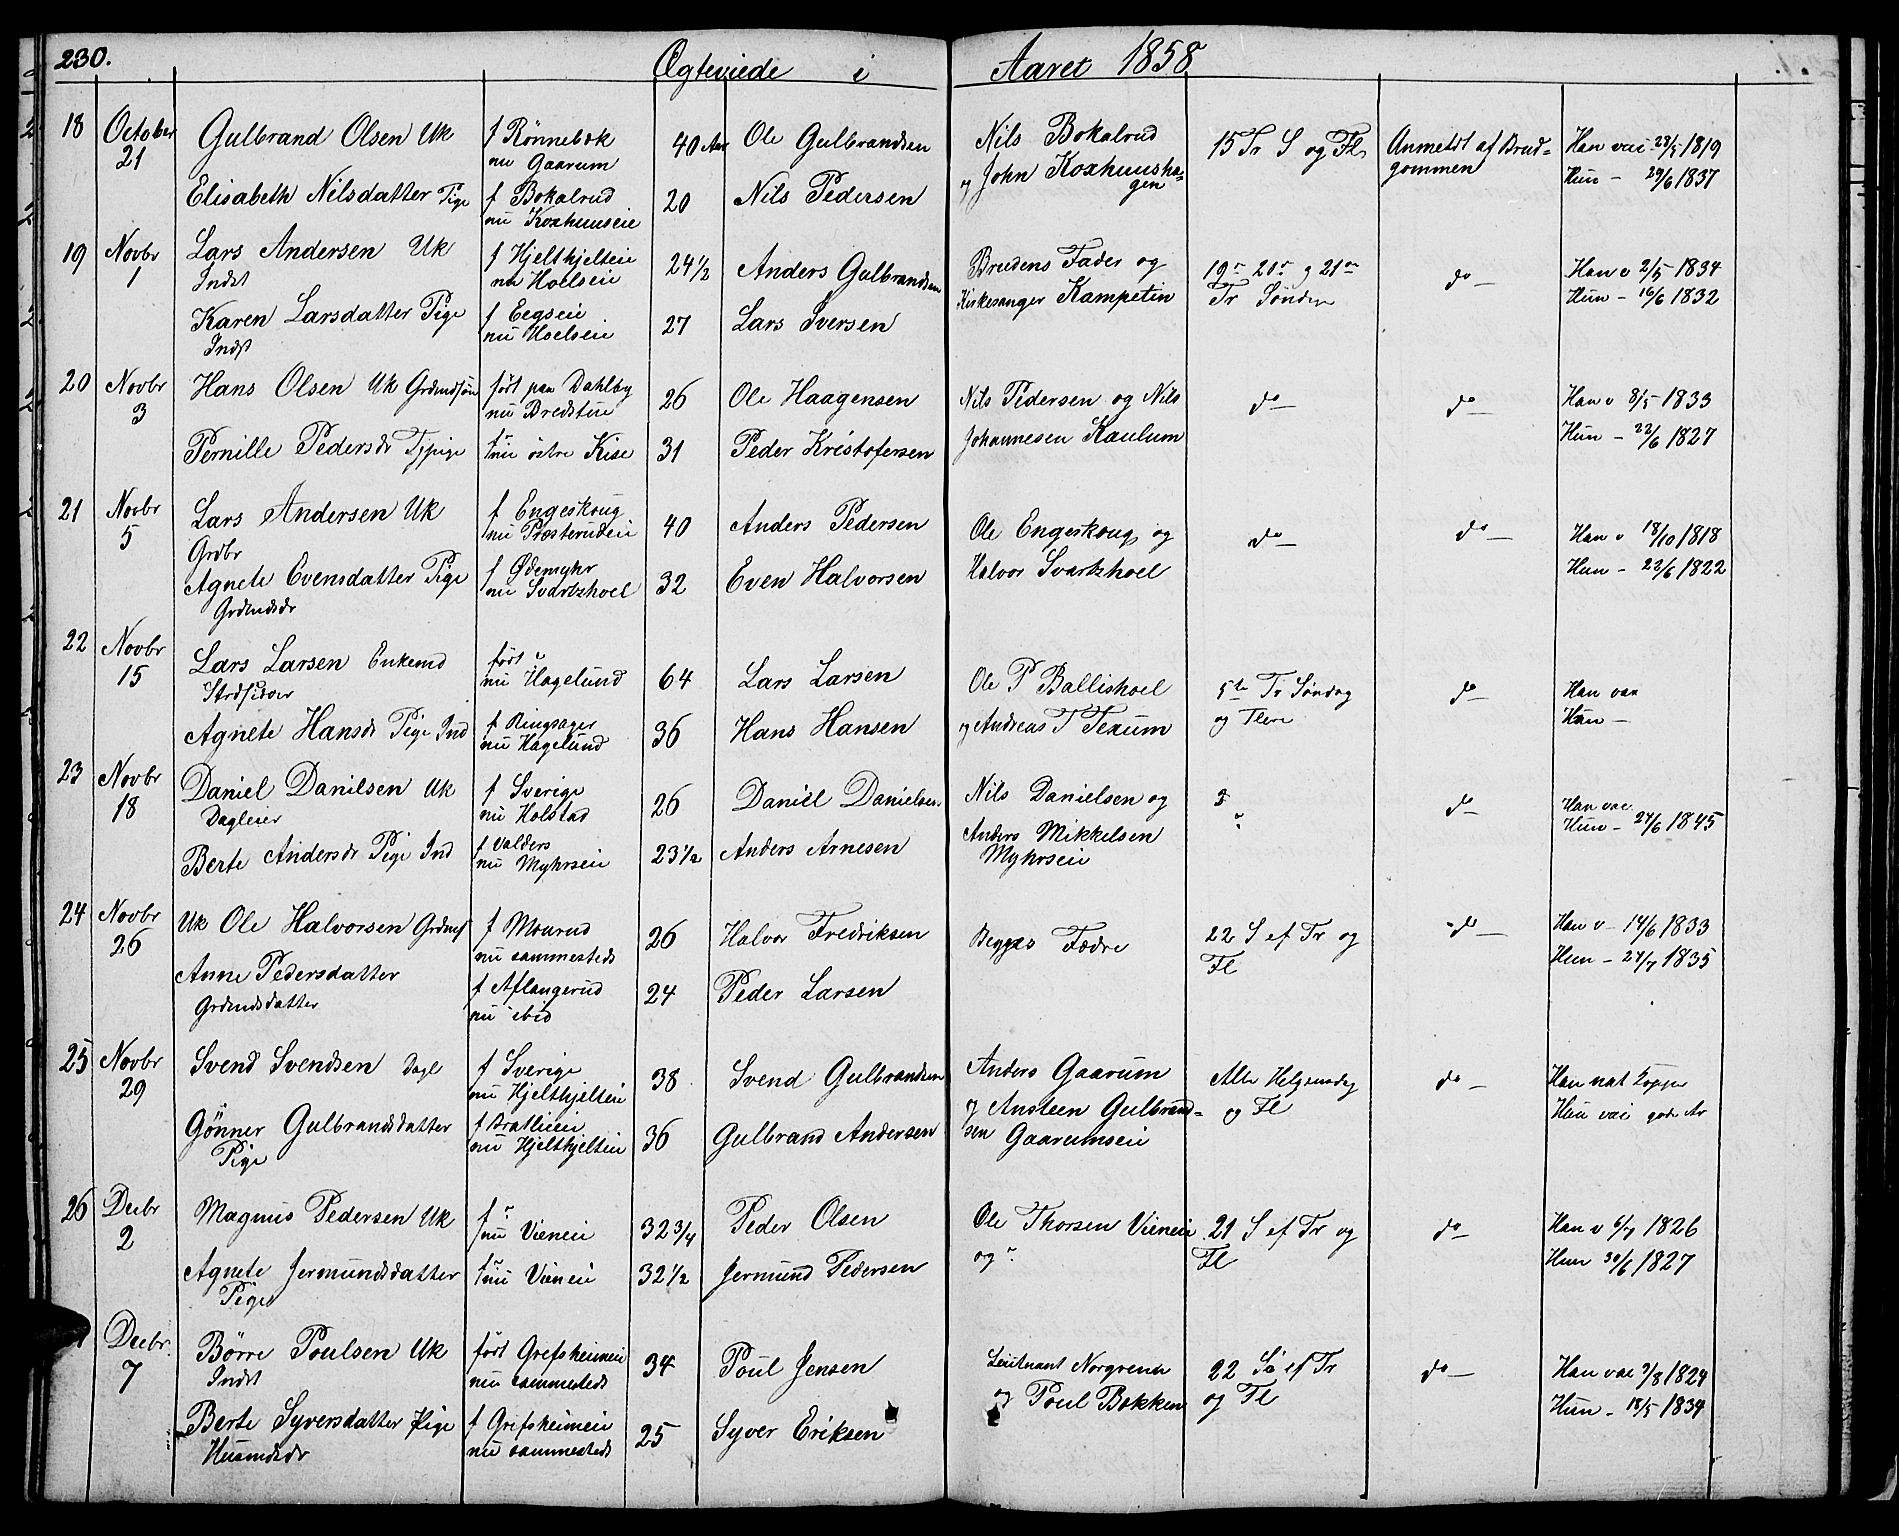 230.
Ægteviede i Aaret 1858
18 October 21 Gulbrand Olsen Uk f Rønnebæk nu Gaarum 40 Aar Ole Gulbrandsen Nils Bokalrud og John Koxhuushagen 15 Tr S og Fl Anmeldt af Brudgommen Han vac 1819
Elisabeth Nilsdatter Pige f Bokalrud nu Koxhuuseie 20 Nils Pedersen Hun - 29/6 1837
19 Novbr 1 Lars Andersen Uk Indst f Hjelthjelteie nu Hoelseie 24 1/2 Anders Gulbrandsen Brudens Fader og Kirkesanger Kampetin 19de 20de og 21de Tr Søndag do - Han v 2/5 1834
Karen Larsdatter Pige Indst f Eegseie nu Hoelseie 27 Lars Iversen Hun - 16/6 1832
20 Novbr 3 Hans Olsen Uk Grdmdsøn født paa Dahlby nu Bredstue 26 Ole Haagensen Nils Pedersen og Nils Johannesen Kaulum do - do - Han v 8/5 1833
Pernille Pedersdr Tjpige f " nu østre Kise 31 Peder Kristofersen Hun - 22/6 1827
21 Novbr 5 Lars Andersen Uk Grdbr f Engeskoug nu Prosterudeie 40 Anders Pedersen Ole Engeskoug og Halvor Svartshoel do - do - Han v 18/10 1818
Agnete Evensdatter Pige Grdmdsdr f Ødemyhr nu Svartshoel 32 Even Halvorsen Hun - 22/6 1822
22 Novbr 15 Lars Larsen Enkemd født " nu Hagelund 64 Lars Larsen Ole P Ballishoel og Andreas T Texum 5te Tr Søndag og Flere do - Han vac
Agnete Hansdr Pige Ind f Ringsager nu Hagelund 36 Hans Hansen Hun -
23 Novbr 18 Daniel Danilsen Uk Dagleier f Sverige nu Holstad 26 Daniel Danielsen Nils Danielsen og Anders Mikkelsen Myhrseie do - Han vac
Berte Andersdr Pige Ind f Valders nu Myhrseie 23 1/2 Anders Arnesen Hun - 24/6 1845
24 Novbr 26 Uk Ole Halvorsen Grdmds f Mourud nu sammesteds 26 Halvor Fredriksen Begges Fædre 22 S ef Tr og Fl do - Han v - 14/6 1833
Anne Pedersdatter Grdmdsdatter f Aflangerud nu ibid 24 Peder Larsen Hun - 24/7 1835
25 Novbr 29 Svend Svendsen Dagl f Sverige nu Hjelthjelteie 38 Svend Gulbrandsen Anders Gaarum og Ansteen Gulbrandsen Gaarumseie Alle Helgensdag og Fl do - Han nat Kopper
Gønner Gulbrandsdatter Pige f Bratlieeie nu Hjelthjelteie 36 Gulbrand Andersen Hun vac gode Ar
26 Decbr 2 Magnus Pedersen Uk f " nu Vieneie 32 3/4 Peder Olsen Ole Thorsen Vieneie og " 21 S ef Tr og Fl do - Han v 6/7 1826
Agnete Jermundsdatter Pige f " nu Vieneie 32 1/2 Jermund Pedersen Hun 30/6 1827
Decbr 7 Børre Poulsen Uk Indst født Grefsheimeie nu sammesteds 34 Poul Jensen Leutnant Norgrenda og Poul Bakken 22 Sø ef Tr og Fl do - Han vac 7/8 1824
Berte Syversdatter Pige Husmdsdr f Grefsheimeie nu sammesteds 25 Syver Eriksen Hun - 18/5 1834